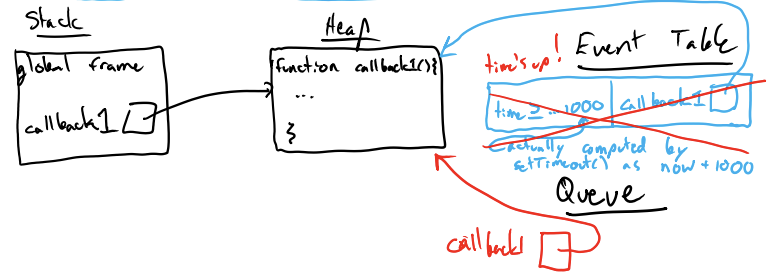 Stack
global frame
callback1
Heap
function callback1(){
...
}
time's up!
Event Table
time ≥ ...1000
callback1
actually computed by
setTimeout() as now + 1000
Queue
callback1